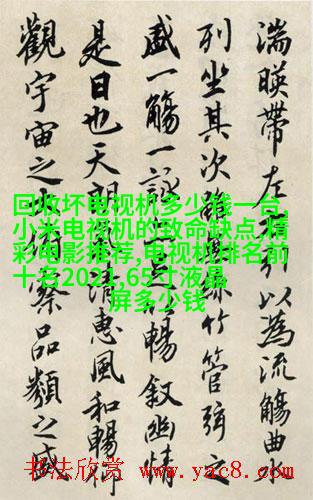 湍暎帶左引以為流觴曲
列坐其次竹管弦之
盛一觴一詠暢敘幽情
是日也天朗清惠風和暢仰
觀宇宙之察品類之盛
回收坏电视机多少钱一台,
小米电视机的致命缺点,精
彩电影推荐,电视机排名前
十名2021,65寸液晶
屏多少钱
书法欣赏 www.yac8.com